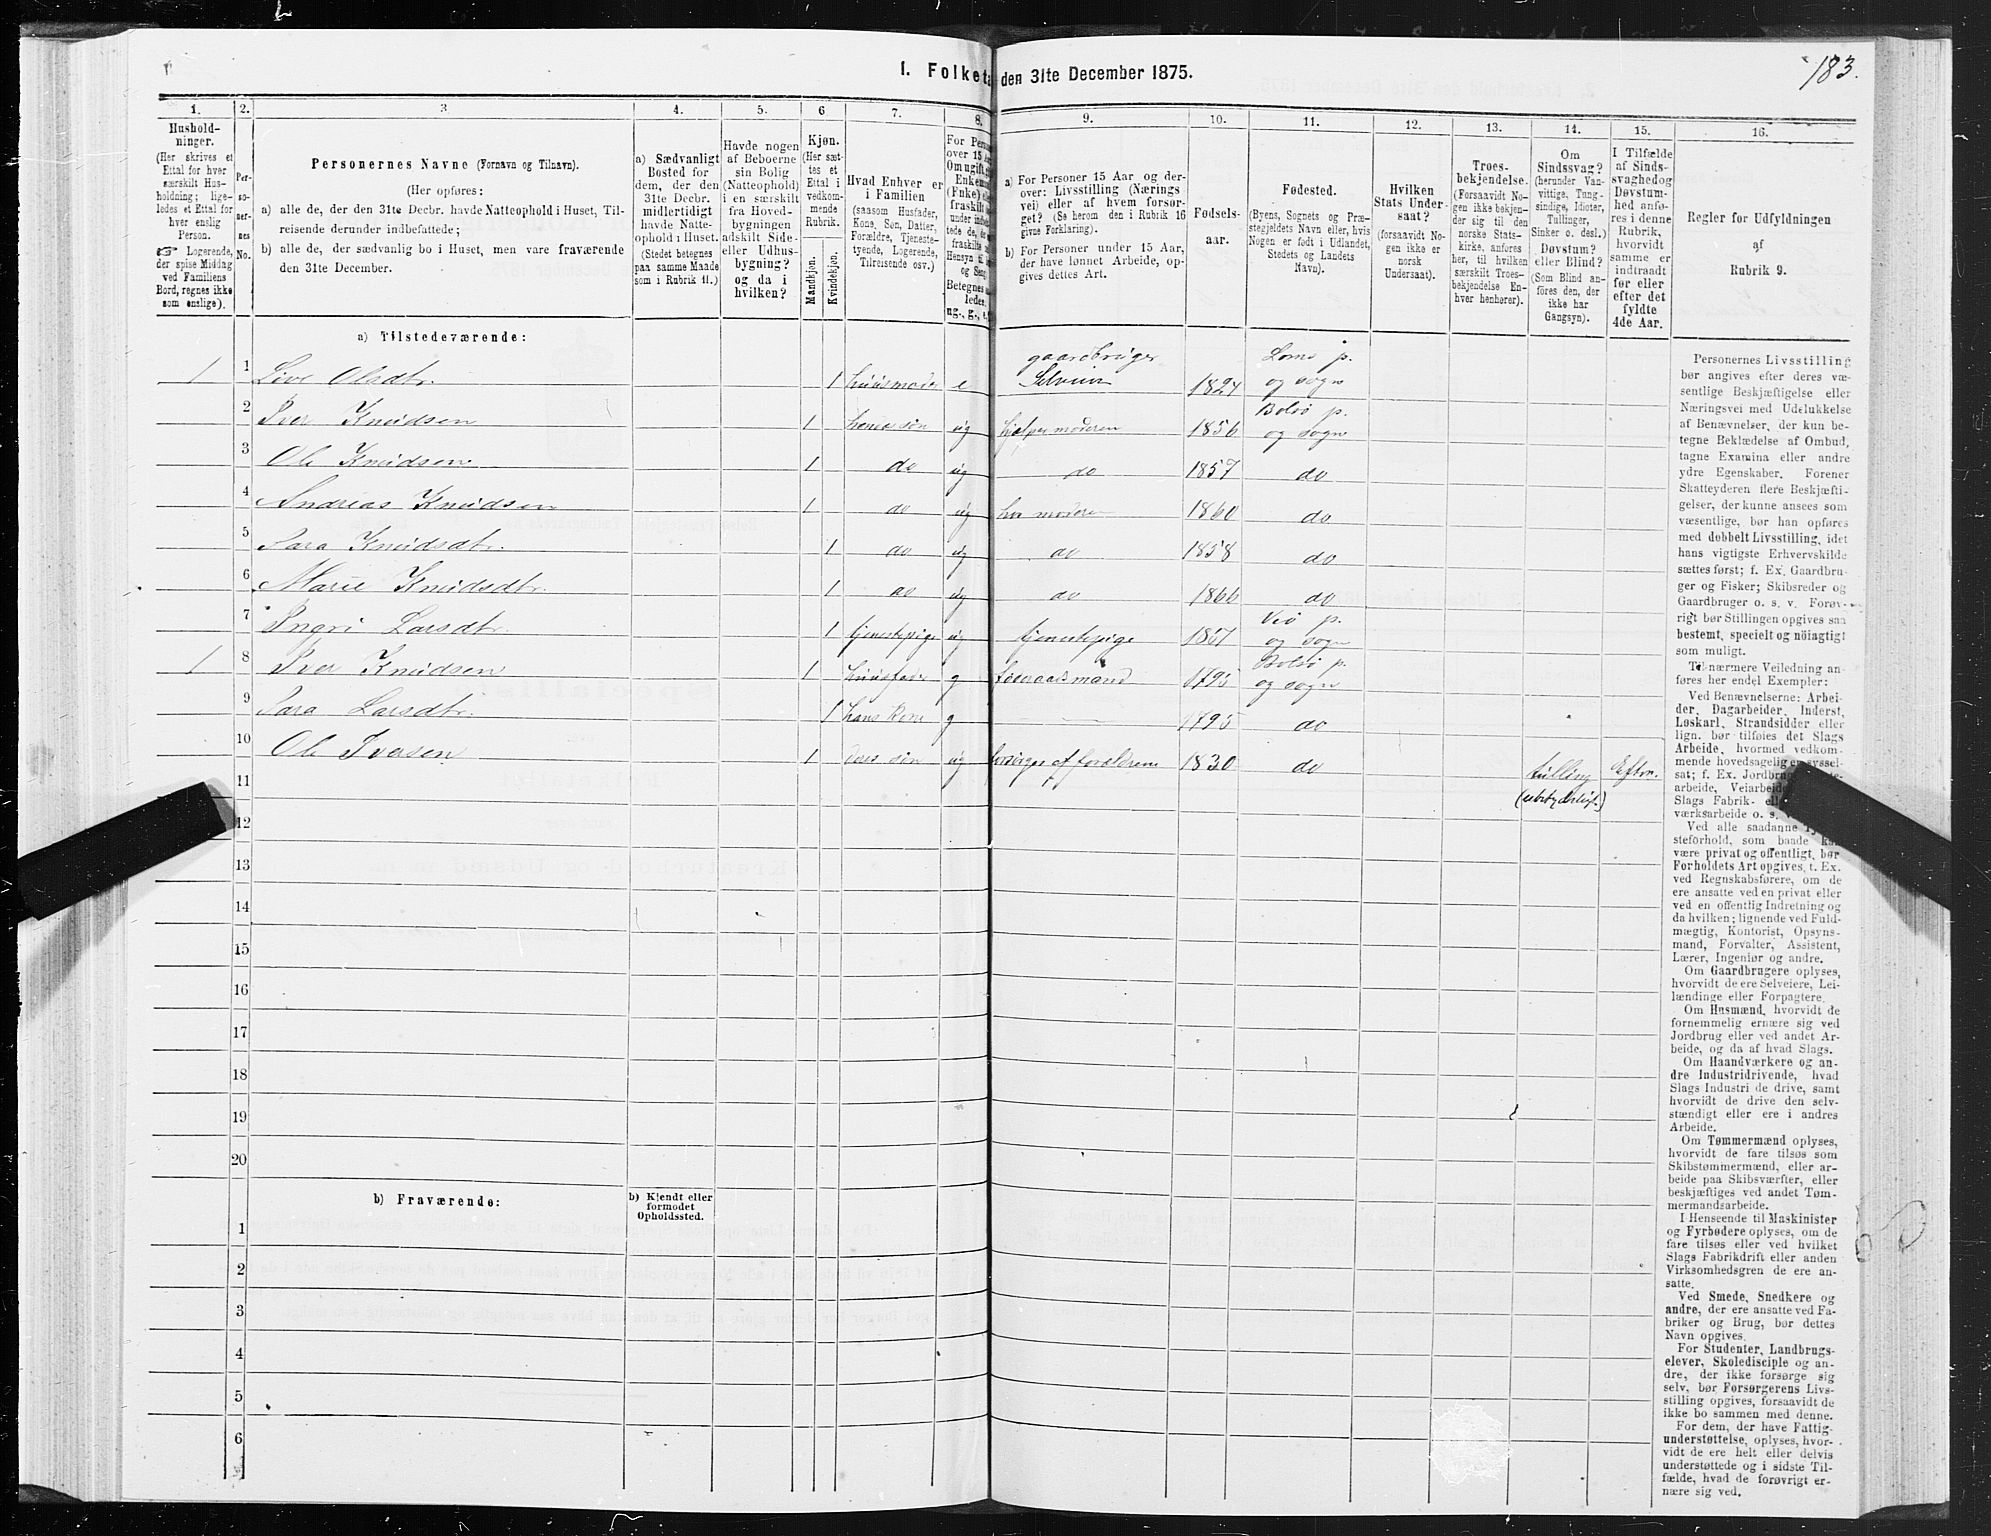 183.
1. Folketa den 31te December 1875.
1. 2. 3. 4. 5. 6. 7. 8. 9. 10. 11. 12. 13. 14. 15. 16.
Hushold-
ninger.
(Her skrives et
Ettal for hver
særskilt Hus-
holdning; lige-
ledes et Ettal for
hver enslig
Person.
☞ Logerende,
der spise Middag
ved Familiens
Bord, regnes ikke
som enslige).
Per-
so-
ner-
nes
No.
Personernes Navne (Fornavn og Tilnavn).
(Her opføres:
a) alle de, der den 31te Decbr. havde Natteophold i Huset, Til-
reisende derunder indbefattede;
b) alle de, der sædvanlig bo i Huset, men vare fraværende
den 31te December.
a) Sædvanligt
Bosted for
dem, der den
31te Decbr.
midlertidigt
havde Natte-
ophold i Huset.
(Stedet betegnes
paa samme Maade
som i Rubrik 11.)
Havde nogen
af Beboerne
sin Bolig
(Natteophold)
i en særskilt
fra Hoved-
bygningen
adskilt Side-
eller Udhus-
bygning?
og da i
hvilken?
Kjøn.
(Her sæt-
tes et
Ettal i
vedkom-
mende
Rubrik.
Mandkjøn.
Kvindekjøn.
Hvad Enhver er
i Familien
(saasom Husfader,
Kone, Søn, Datter,
Forældre, Tjeneste-
tyende, Logerende,
Tilreisende osv.)
For Pers
over 15 Aa
Om ugift
Enkem
(Fnke) el
fraskilt
under indb
tede de,
fraskilte
Hensyn til
og Seng
Betegnes
ledes
ug., g., e.
a) For Personer 15 Aar og der-
over: Livsstilling (Nærings
vei) eller af hvem forsør-
get? (Se herom den i Rubrik 16
givne Forklaring).
b) For Personer under 15 Aar,
der have lønnet Arbeide, op-
gives dettes Art.
Fødsels-
aar.
Fødested.
(Byens, Sognets og Præ-
stegjeldets Navn eller, hvis
Nogen er født i Udlandet,
Stedets og Landets
Navn).
Hvilken
Stats Under-
saat?
(forsaavidt No-
gen ikke er
norsk
Undersaat).
Troes-
bekjendelse.
(Forsaavidt No-
gen ikke bekjen-
der sig til den
norske Stats-
kirke, anføres
her, til hvilken
særskilt Troes-
bekjendelse En-
hver henhører).
Om
Sindssvag?
(herunder Van-
vittige, Tung-
sindige, Idioter,
Tullinger,
Sinker o. desl.)
Døvstum?
eller Blind?
(Som Blind an-
føres den, der
ikke har
Gangsyn).
I Tilfælde
af Sinds-
svaghed og
Døvstum-
hed anfø-
res i denne
Rubrik,
hvorvidt
samme er
indtraadt
før eller
efter det
fyldte
4de Aar.
Regler for Udfyldningen
af
Rubrik 9.
a) Tilstedeværende:
1 1 Live Olsdtr. 1 huusmoder e gaardbruger Selveier 1824 Loms p. og sogn
2 Iver Knudsen 1 hendes søn ug hjelper moderen 1856 Bolsø p. og sogn
3 Ole Knudsen 1 do ug do 1857 do
4 Andreas Knudsen 1 do ug hos moderen 1860 do
5 Sara Knudsdtr. 1 do ug do 1858 do
6 Marie Knudsdtr. 1 do ug do 1866 do
7 Ingri Larsdtr. 1 tjenestepige ug tjenestepige 1857 Veø p. og sogn
1 8 Iver Knudsen 1 huusfader g foderaadsmand 1795 Bolsø p. og sogn
9 Sara Larsdtr. 1 hans kone g 1795 do
10 Ole Iversen 1 deres søn ug forsørges af forældrene 1830 do tulling Efter.
11
12
13
14
15
16
17
18
19
20
b) Fraværende:
b) Kjendt eller
formodet
Opholdssted.
1
2
3
4
5
6
Personernes Livsstilling
bør angives efter deres væ-
sentlige Beskjæftigelse eller
Næringsvei med Udelukkelse
af Benævnelser, der kun be-
tegne Beklædelse af Ombud,
tagne Examina eller andre
ydre Egenskaber. Forener
Skatteyderen flere Beskjæfti-
gelser, der kunne ansees som
væsentlige, bør han opføres
med dobbelt Livsstilling, idet
hans vigtigste Erhvervskilde
sættes først; f. Ex. Gaardbru-
ger og Fisker; Skibsreder og
Gaardbruger o. s. v. Forøv-
rigt bør Stillingen opgives saa
bestemt, specielt og nöiagtigt
som muligt.
Til nærmere Veiledning an-
føres her endel Exempler:
Ved Benævnelserne: Arbei-
der, Dagarbeider, Inderst,
Løskarl, Strandsidder eller
lign. bør tilføies det Slags
Arbeide, hvormed vedkom-
mende hovedsagelig er syssel-
sat; f. Ex. Jordbrug
arbeide, Veiarbeide
Slags Fabrik-
værksarbeide o. s.
Ved alle saadanne
steforhold, som baade
være privat og offentligt, bør
Forholdets Art opgives, t. Ex.
ved Regnskabsførere, om de
ere ansatte ved en privat eller
ved en offentlig Indretning og
da hvilken; lignende ved Fuld-
mægtig, Kontorist, Opsyns-
mand, Forvalter, Assistent,
Lærer, Ingeniør og andre.
Om Gaardbrugere oplyses,
hvorvidt de ere Selveiere, Lei-
lændinge eller Forpagtere.
Om Husmænd, hvorvidt de
fornemmelig ernære sig ved
Jordbrug eller ved andet Ar-
beide, og da af hvad Slags.
Om Haandværkere og an-
dre Industridrivende, hvad
Slags Industri de drive, samt
hvorvidt de drive den selv-
stændigt eller ere i andres
Arbeide.
Om Tømmermænd oplyses,
hvorvidt de fare tilsøs som
Skibstømmermænd, eller ar-
beide paa Skibsværfter, eller
beskjæftiges ved andet Tøm-
mermandsarbeide.
I Henseende til Maskinister
og Fyrbødere oplyses, om de
fare tilsøs eller ved hvilket
Slags Fabrikdrift eller anden
Virksomhedsgren de ere an-
satte.
Ved Smede, Snedkere og
andre, der ere ansatte ved Fa-
briker og Brug, bør dettes
Navn opgives.
For Studenter, Landbrugs-
elever, Skoledisciple og an-
dre, der ikke forsørge sig
selv, bør Forsørgerens Livs-
stilling opgives, forsaavidt de
ikke bo sammen med denne.
For dem, der have Fattig-
understøttelse, oplyses, hvor-
vidt de ere helt eller delvis
understøttede og i sidste Til-
fælde, hvad de forøvrigt er-
nære sig ved.